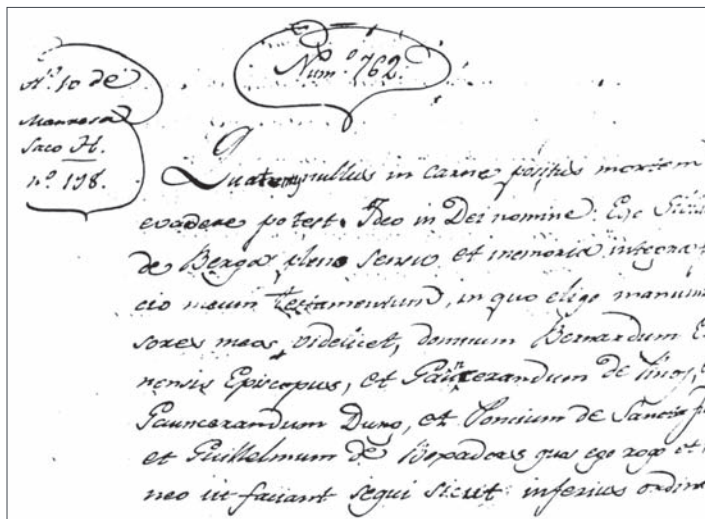 Num.º 762.
Nº. 10 de
Manresa
Saco H.
nº. 198.
nullus in carne positus mortem
evadere potest. Ideo in Dei nomine. Ego
de Berga pleno sensu et memoria integra
cio meum testamentum, in quo eligo manum
sores meos, videlicet, domnum Bernardum
nensis Episcopus, et Gaucerandum de Pinos,
Gaucerandum Duno, et Poncium de Sancta
et Guillelmum de quos ego rogo et
neo ut faciant sequi sicut inferius ordina